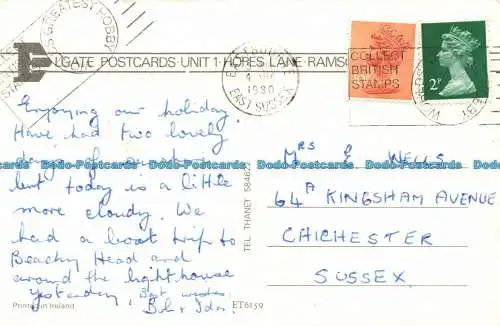 ELGATE POSTCARDS · UNIT 1 · HORES LANE · RAMSG
GREATEST HOBBY
EASTBOURNE
1980
EAST SUSSEX
COLLECT
BRITISH
STAMPS
2P
Enjoying our holiday.
Have had two lovely
days of sunshine
but today is a little
more cloudy. We
had a boat trip to
Beachy Head and
around the lighthouse
yesterday. Best wishes
Bob & Ida.
MRS E WELLS
64A KINGSHAM AVENUE
CHICHESTER
SUSSEX.
TEL THANET 584622
Printed in Ireland
ET6159
Dodo-Postcards Dodo-Postcards Dodo-Postcards Dodo-Postcards